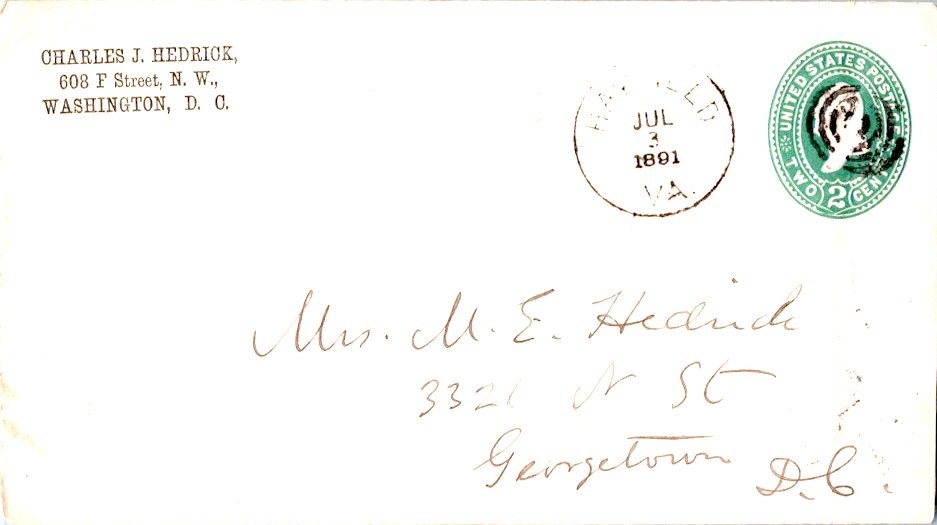 CHARLES J. HEDRICK,
608 F Street, N. W.,
WASHINGTON, D. C.
JUL
3
1891
VA.
UNITED STATES POSTAGE
TWO 2 CENTS
Mrs. M. E. Hedrick
3321 N St
Georgetown D.C.